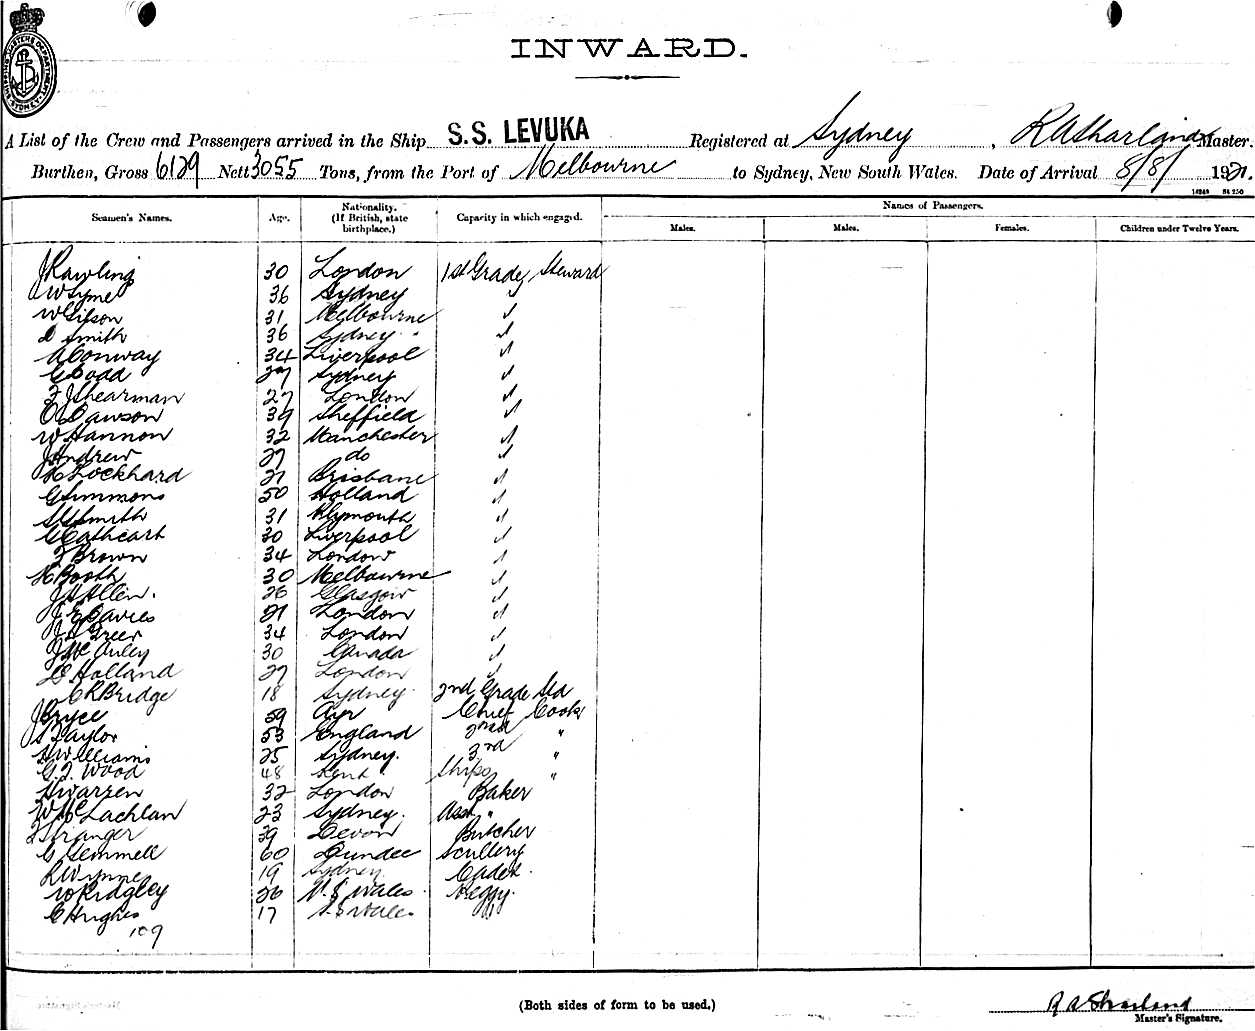 SHIPPING MASTERS DEPARTMENT SYDNEY
INWARD.
A List of the Crew and Passengers arrived in the Ship S.S. LEVUKA Registered at Sydney, R A Sharland Master.
Burthen, Gross 6129 Nett 3055 Tons, from the Port of Melbourne to Sydney, New South Wales. Date of Arrival 8/8/ 1921.
Seamen's Names. Age. Nationality. (If British, state birthplace.) Capacity in which engaged. Names of Passengers.
Males. Males. Females. Children under Twelve Years.
J Rawling 30 London 1st Grade Steward
W Syme 36 Sydney "
W Gibson 31 Melbourne "
D Smith 36 Sydney "
A Conway 34 Liverpool "
C Dodd 27 Sydney "
F J Shearman 27 London "
C Dawson 39 Sheffield "
W Hannon 32 Manchester "
J Andrew 27 do "
H Lockhard 27 Brisbane "
G Simmons 50 Holland "
Smith 31 Plymouth "
C Cathcart 30 Liverpool "
F Brown 34 London "
H Booth 30 Melbourne "
J A Allen. 26 Glasgow "
J E Davies 21 London "
Greer 34 London "
J McAuley 30 Canada "
Holland 27 London "
C R Bridge 18 Sydney 2nd Grade Std
J Bryce 59 Ayr Chief Cook
S Taylor 53 England 2nd "
H Williams 25 Sydney. 3rd "
G. J. Wood 48 Kent Ships "
H Warren 32 London Baker
W McLachlan 23 Sydney. Asst "
J Stranger 39 Devon Butcher
C Gemmell 60 Dundee Scullery
R Wynne 19 Sydney Cadet.
W Ridgley 26 N. S. Wales Peggy.
C Hughes 17 N. S Wales "
109
(Both sides of form to be used.)
R A Sharland
Master's Signature.